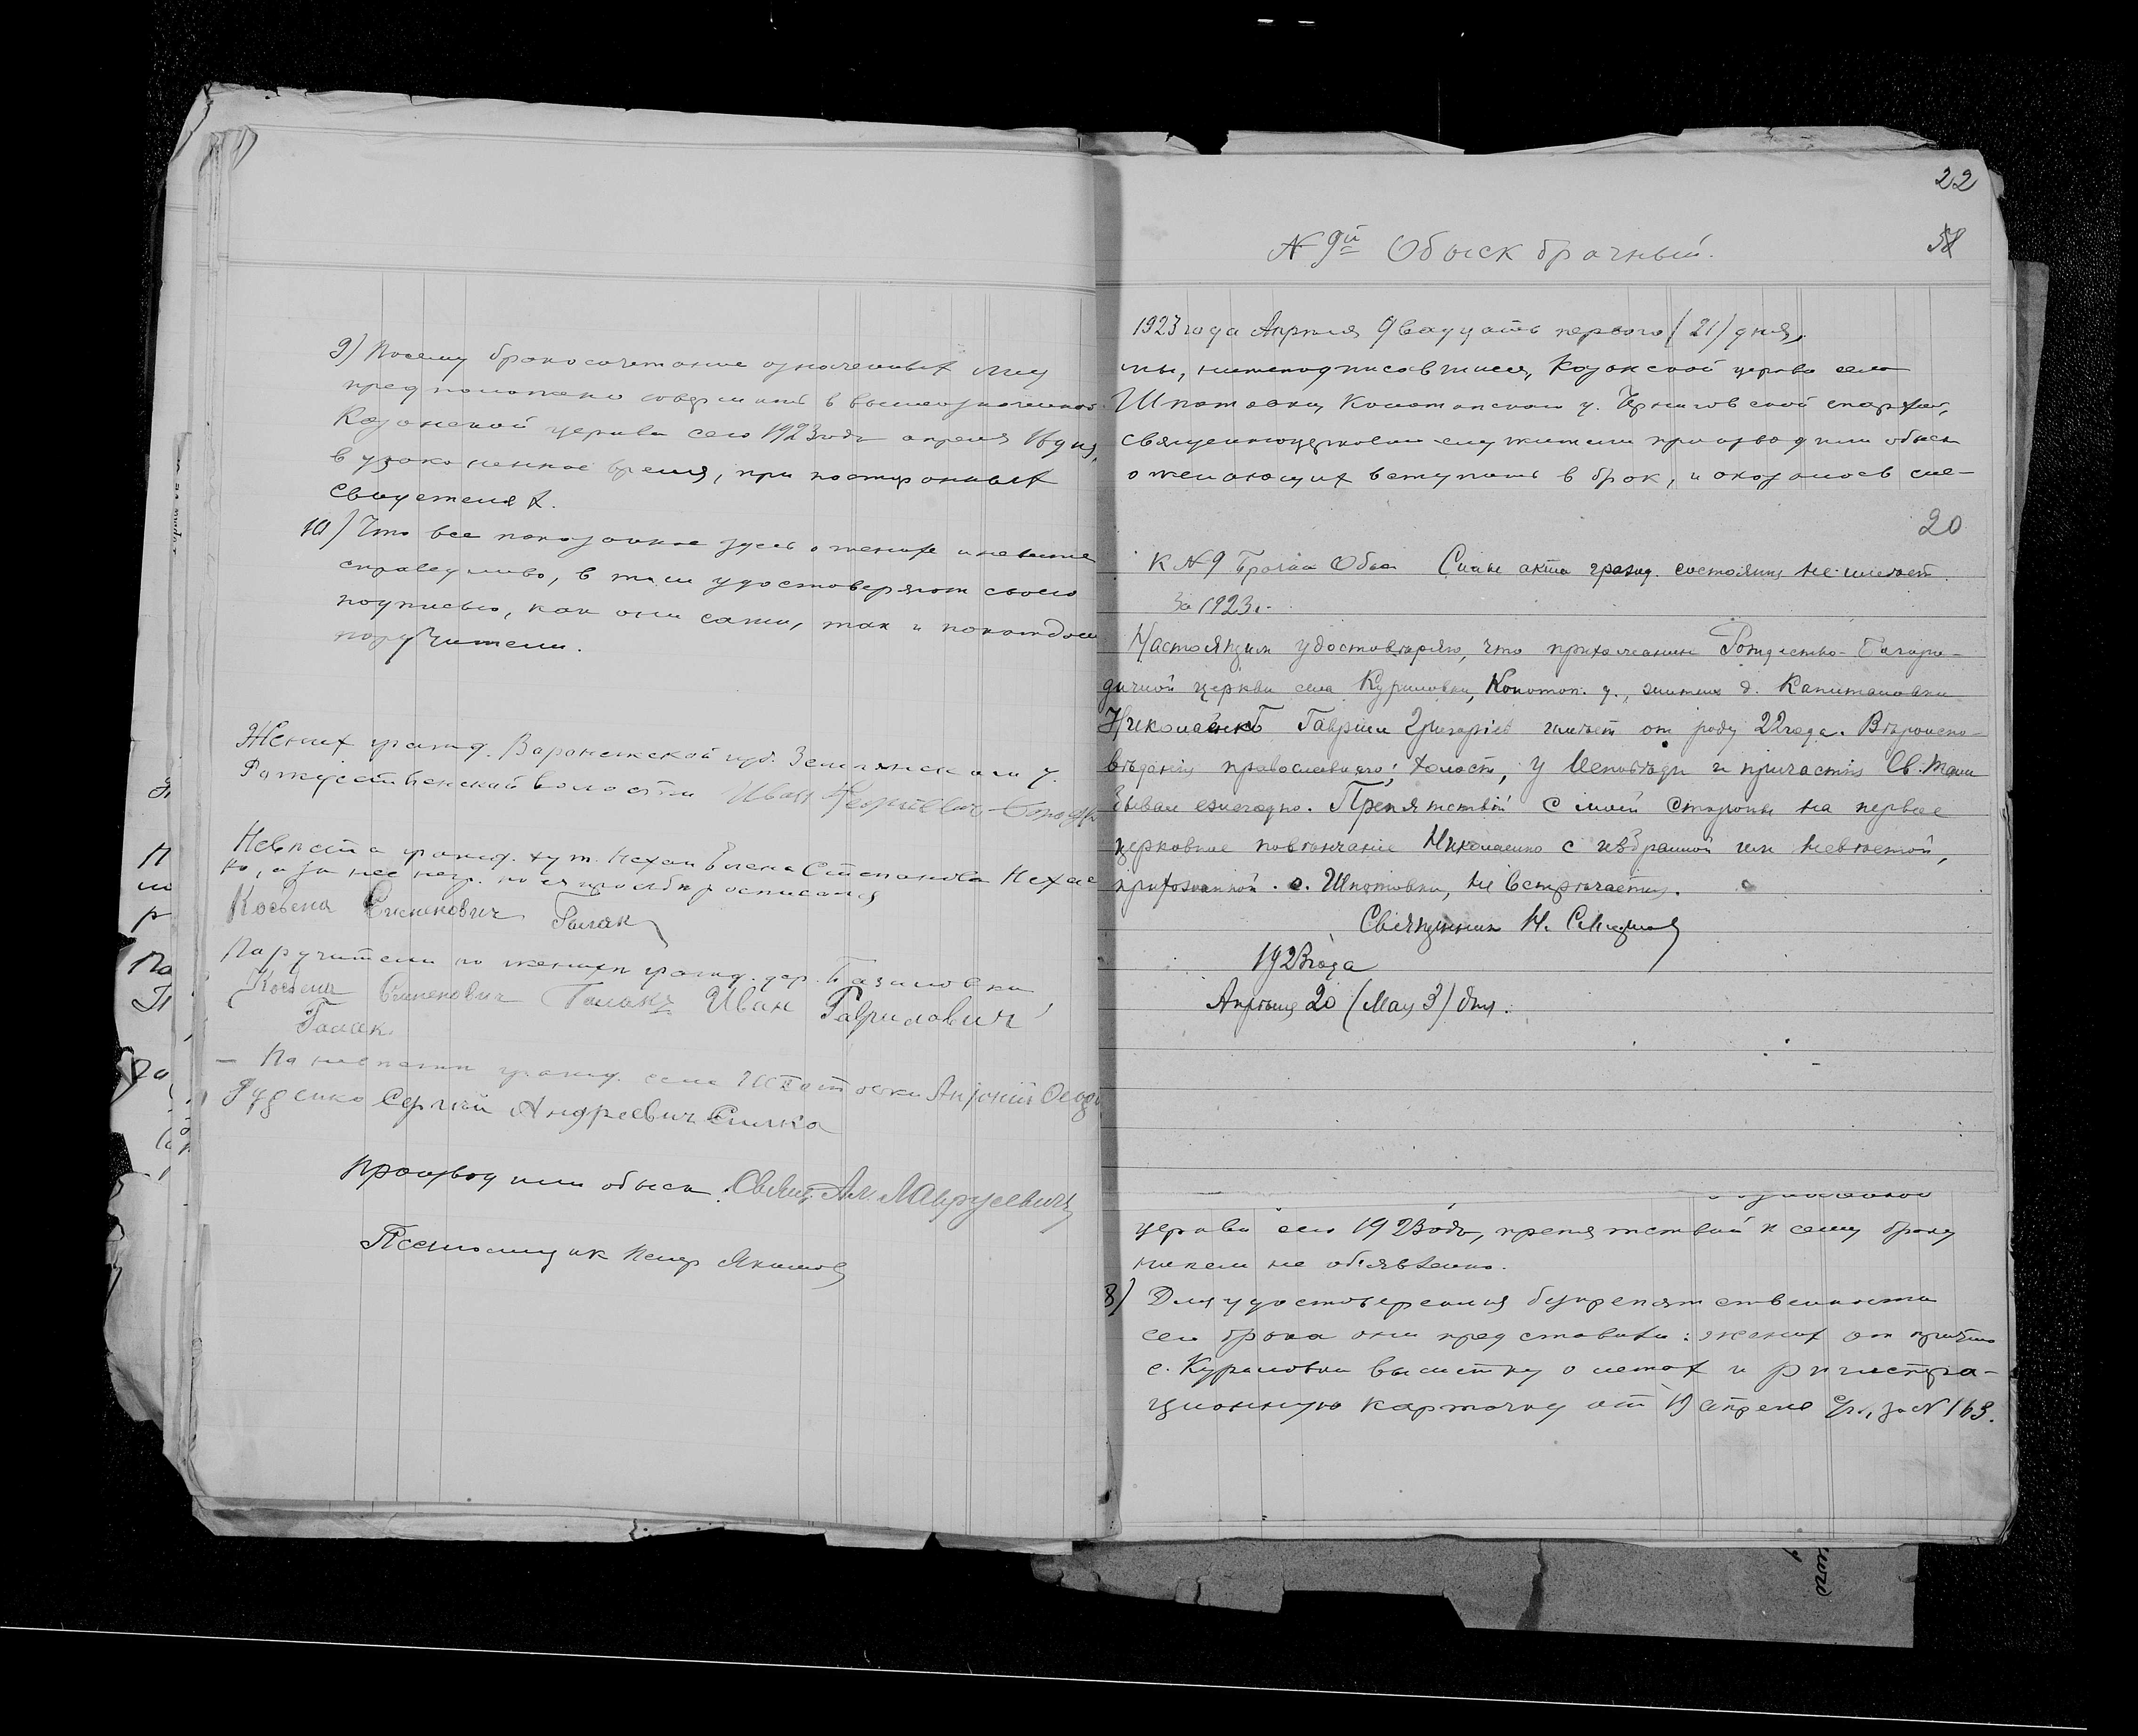 9) Посему бракосочетание означенных лиц
предположено совершить в вышеозначенной
Казанской церкви сего 1923 года апреля 16 дня,
в узаконенное время, при посторонных
свидетелях.
10) Что все показанное здесь о женихе и невесте
справедливо, в том удостоверяют своею
подписью, как они сами, так и по каждом
поручители.
Жених гражд. Воронежской губ. Землянск ого у.
Рождественский волости Иван
Невеста гражд. хут. Нехаи Елена Степановна Неха
ко, а за нее негр. по ея просьбе росписался
Косьма Симонович Галак
Паручители по женихи гражд. дер. Базиловки
Косьма Сименович Галакъ Иван Гаврилович
Галак.
— По невести гражд. села Шпотовки
Руденко Сергий Андреевич Силка
Производили обыск. Свящ. Ал.
Псаломщик Петр Якимов
22
58
N 9й Обыск брачный.
1923 года Апреля двадцать первого (21) дня,
мы, нижеподписавшиеся, Казанской церкви села
Шпотовки Конотопского у. Черниговской епархии,
священноцерковнослужители производили обыск
о желающих вступить в брак, и оказалось сле-
20
К N 9 Брачн. Обы. акта гражд. состояния не имеет
За 1923 г.
Настоящим удостоверяю, что прихожанин Рождество-Богоро-
дичной церкви села Куриловки, Конотоп. у., житель д. Капитановки
Николаенко Гавриил Григорiев имеет от роду 22 года. Вѣроиспо-
вѣданiя православнаго; холост, у Исповѣди и причастiя Св. Таин
бывал ежегодно. Препятствiй с моей стороны на первое
церковное повѣнчанiе Николаенко с избранной им невѣстой,
прихожанкой с. Шпотовки, не встрѣчается.
Священник Н.
1923 года
Апрѣля 20 (Мая 3) дня.
церкви сего 1923 года, препятствий к сему браку
никем не обявлено.
8) Для удостоверения безпрепятственности
сего брака они представили: жених от причта
с. Куриловки выписку о летах и регистра-
ционную карточку от 19 апреля с/г., за N 163.